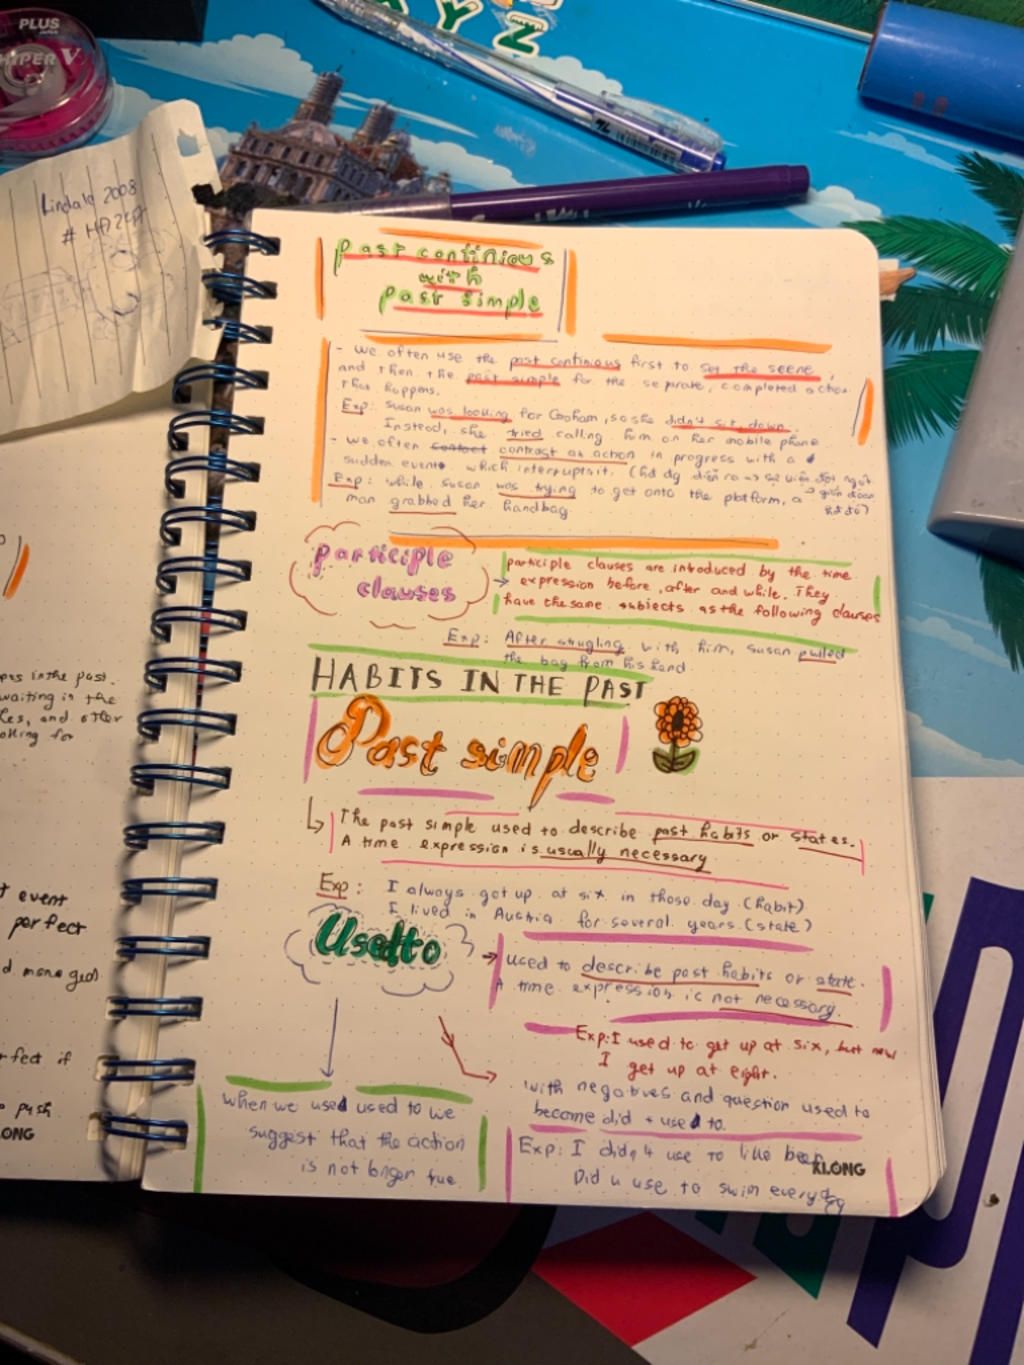 PLUS
JAPAN
HYPER V
YZ
Lindale 2008
past continious
with
past simple
- we often use the past continious first to set the scene,
and then the past simple for the seprate, completed action
that happens.
Exp: susan was looking for Graham, so she didn't sit down.
Instead, she tried calling him on her mobile phone
- we often contrast an action in progress with a
sudden event which interrupts it. (hđ đg diễn ra vs sự kiện đột ngột
Exp: while susan was trying to get onto the platform, a gián đoạn
man grabbed her handbag
hđ đó)
participle
clauses
participle clauses are introduced by the time
→ expression before, after and while. They
have the same subjects as the following clauses
Exp: After strugling with him, susan pulled
the bag from his hand
HABITS IN THE PAST
Past simple
The past simple used to describe past habits or states.
A time expression is usually necessary
Exp: I always got up at six in those day (habit)
I lived in Austria for several years (state)
Used to
→ used to describe past habits or state.
A time expression is not necessary.
Exp: I used to get up at six, but now
I get up at eight.
with negatives and question used to
become did + use to
Exp: I didn't use to like beer
Did u use to swim everyday
KLONG
when we used used to we
suggest that the action
is not longer true
in the past.
waiting in the
and other
looking for
event
perfect
if
push
ONG